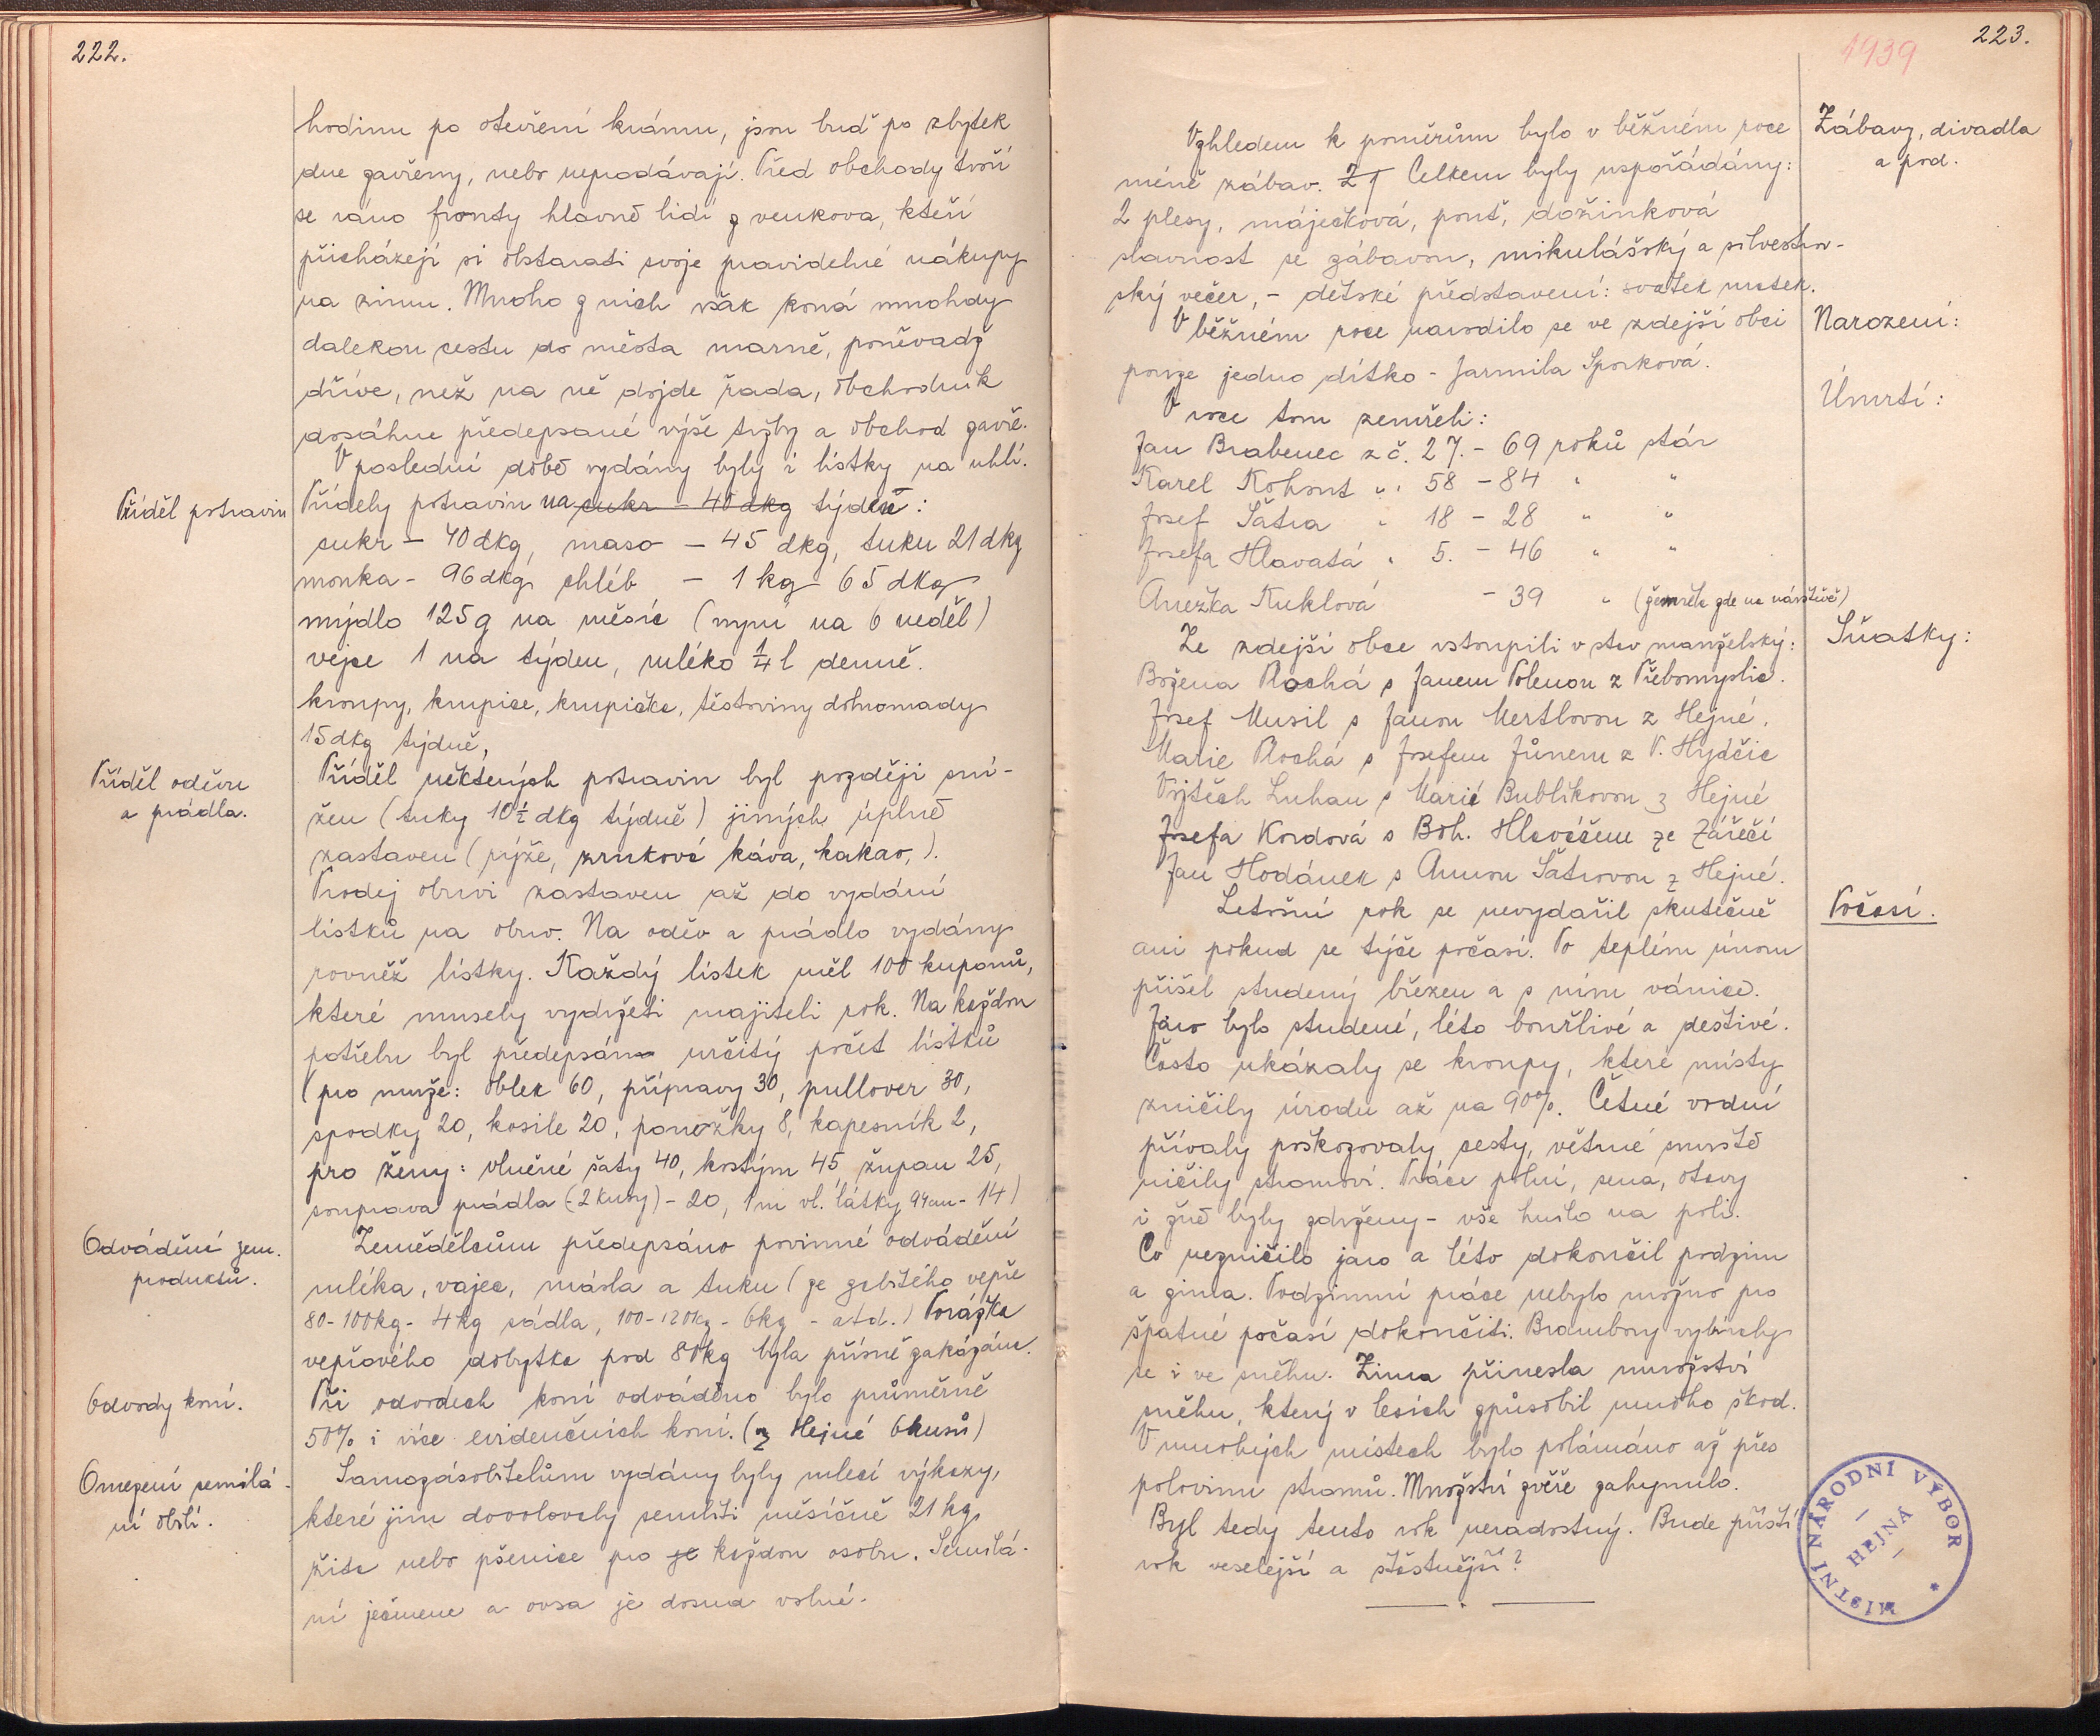 222.
hodinu po otevření krámu, jsou buď po zbytek
dne zavřeny, nebo neprodávají. Před obchody tvoří
se ráno fronty hlavně lidí z venkova, kteří
přicházejí si obstarati svoje pravidelné nákupy
na zimu. Mnoho z nich však koná mnohdy
dalekou cestu do města marně, poněvadž
dříve, než na ně dojde řada, obchodník
dosáhne předepsané výše tržby a obchod zavře.
V poslední době vydány byly i lístky na uhlí.
Příděl potravin
Příděly potravin na cukr - 40 dkg týdně:
cukr - 40 dkg, maso - 45 dkg, tuku 21 dkg
mouka - 96 dkg, chléb - 1 kg 65 dkg
mýdlo 125 g na měsíc (nyní na 6 neděl)
vejce 1 na týden, mléko 1/4 l denně.
kroupy, krupice, krupička, těstoviny dohromady
15 dkg týdně,
Příděl oděvu
a prádla.
Příděl některých potravin byl později sní-
žen (tuky 10 1/2 dkg týdně) jiných úplně
zastaven (rýže, zrnková káva, kakao,).
Prodej obuvi zastaven až do vydání
lístků na obuv. Na oděv a prádlo vydány
rovněž lístky. Každý lístek měl 100 kuponů,
které musely vydržeti majiteli rok. Na každou
potřebu byl předepsán určitý počet lístků
(pro muže: oblek 60, přípravy 30, pullover 30,
spodky 20, košile 20, ponožky 8, kapesník 2,
pro ženy: vlněné šaty 40, kostým 45, župan 25,
souprava prádla (2 kusy) - 20, 1 m vl. látky 94 cm - 14)
Odvádění zem.
produktů.
Zemědělcům předepsáno povinné odvádění
mléka, vajec, másla a tuku (ze zabitého vepře
80-100 kg - 4 kg sádla, 100-120 kg - 6 kg - atd.) Porážka
vepřového dobytka pod 80 kg byla přísně zakázána.
Odvody koní.
Při odvodech koní odváděno bylo průměrně
50% i více evidenčních koní. (z Hejné 6 kusů)
Omezení semílá-
ní obilí.
Samozásobitelům vydány byly mlecí výkazy,
které jim dovolovaly semlíti měsíčně 21 kg
žita nebo pšenice pro je každou osobu. Semílá-
ní ječmene a ovsa je dosud volné.
1939
223.
Zábavy, divadla
a pod.
Vzhledem k poměrům bylo v běžném roce
méně zábav. Celkem byly uspořádány:
2 plesy, máječková, pouť, dožinková
slavnost se zábavou, mikulášský a silvestrov-
ský večer, - dětské představení: svátek matek.
Narození:
V běžném roce narodilo se ve zdejší obci
pouze jedno dítko - Jarmila Sporková.
Úmrtí:
V roce tom zemřeli:
Jan Brabenec z č. 27. - 69 roků stár
Karel Kohout " " 58 - 84 " "
Josef Šatra " 18 - 28 " "
Josefa Hlavatá " 5. - 46 " "
Anežka Kuklová - 39 " (zemřela zde na návštěvě)
Sňatky:
Ze zdejší obce vstoupili v stav manželský:
Božena Plochá s Janem Polenou z Třebomyslic.
Josef Musil s Janou Mertlovou z Hejné.
Marie Plochá s Josefem Jůnem z V. Hydčic
Vojtěch Luhan s Marií Bublíkovou z Hejné
Josefa Kordová s Boh. Hlaváčem ze Zářečí
Jan Hodánek s Annou Šatrovou z Hejné.
Počasí.
Letošní rok se nevydařil skutečně
ani pokud se týče počasí. Po teplém únoru
přišel studený březen a s ním vánice.
Jaro bylo studené, léto bouřlivé a deštivé.
Často ukázaly se kroupy, které místy
zničily úrodu až na 90%. Četné vodní
přívaly poškozovaly cesty, větrné smrště
ničily stromoví. Práce polní, sena, otavy
i žně byly zdrženy - vše hnilo na poli.
Co nezničilo jaro a léto dokončil podzim
a zima. Podzimní práce nebylo možno pro
špatné počasí dokončiti. Brambory vybíraly
se i ve sněhu. Zima přinesla množství
sněhu, který v lesích způsobil mnoho škod.
V mnohých místech bylo polámáno až přes
polovinu stromů. Množství zvěře zahynulo.
Byl tedy tento rok neradostný. Bude příští
rok veselejší a šťastnější?
MÍSTNÍ NÁRODNÍ VÝBOR
HEJNÁ